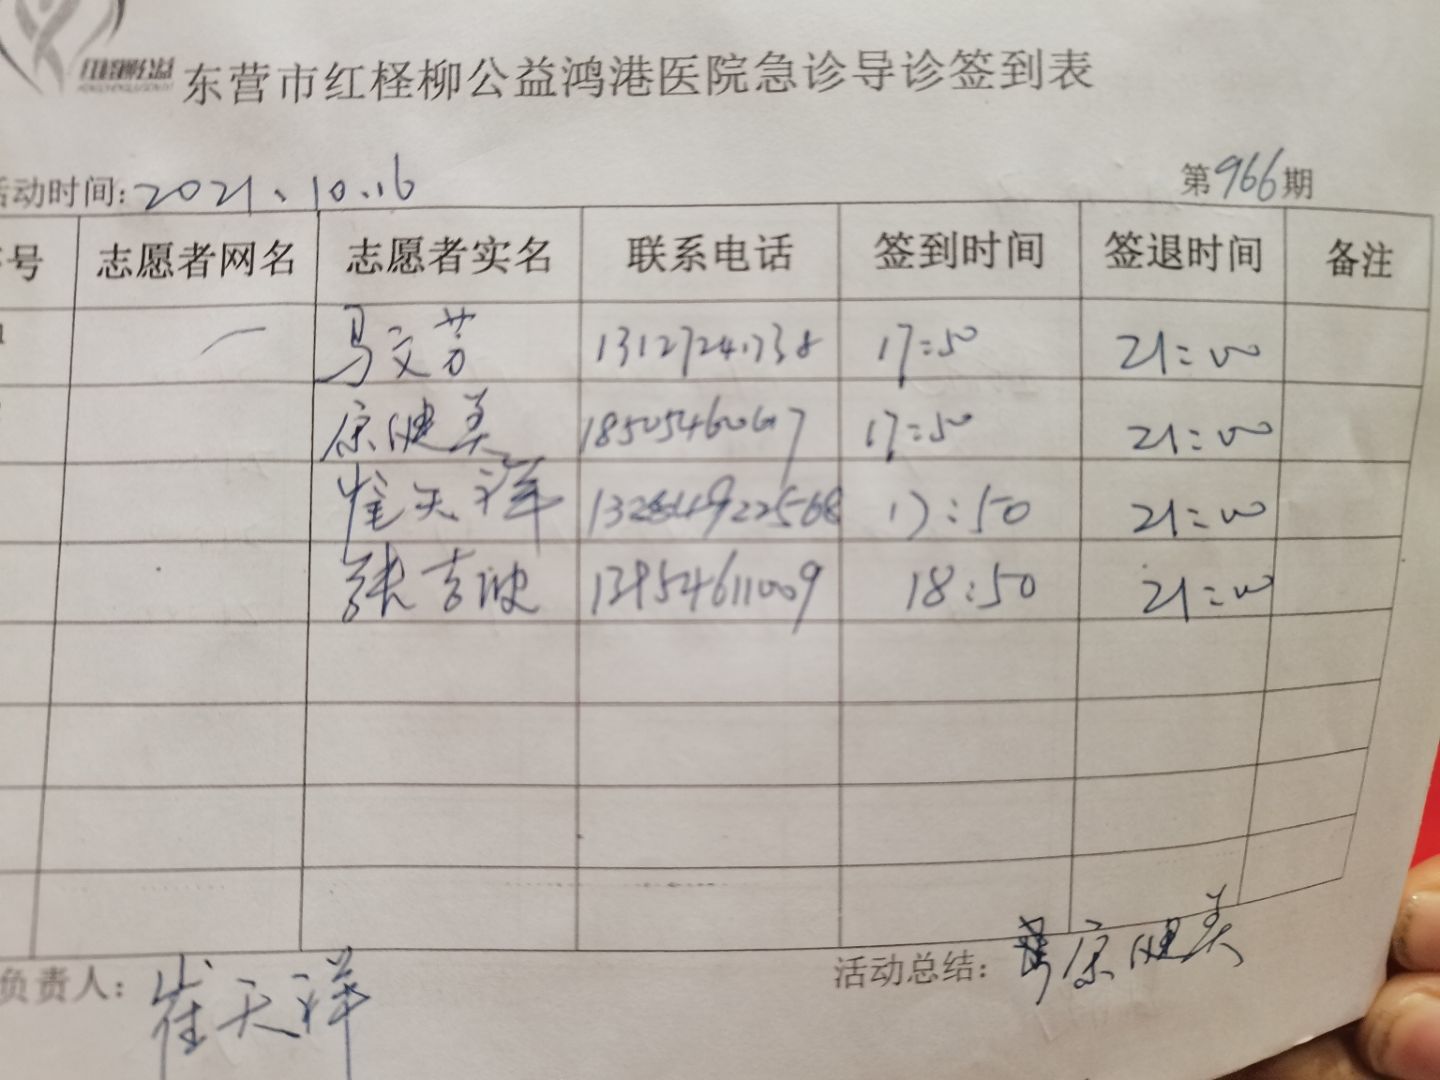 东营市红柽柳公益鸿港医院急诊导诊签到表
活动时间:2021、10.16 第966期
号 志愿者网名 志愿者实名 联系电话 签到时间 签退时间 备注
一 马文芳 13127241738 17:50 21:00
康健美 18505460617 17:50 21:00
崔天祥 17:50 21:00
张吉波 13954611009 18:50 21:00
负责人: 崔天祥 活动总结: 康健美